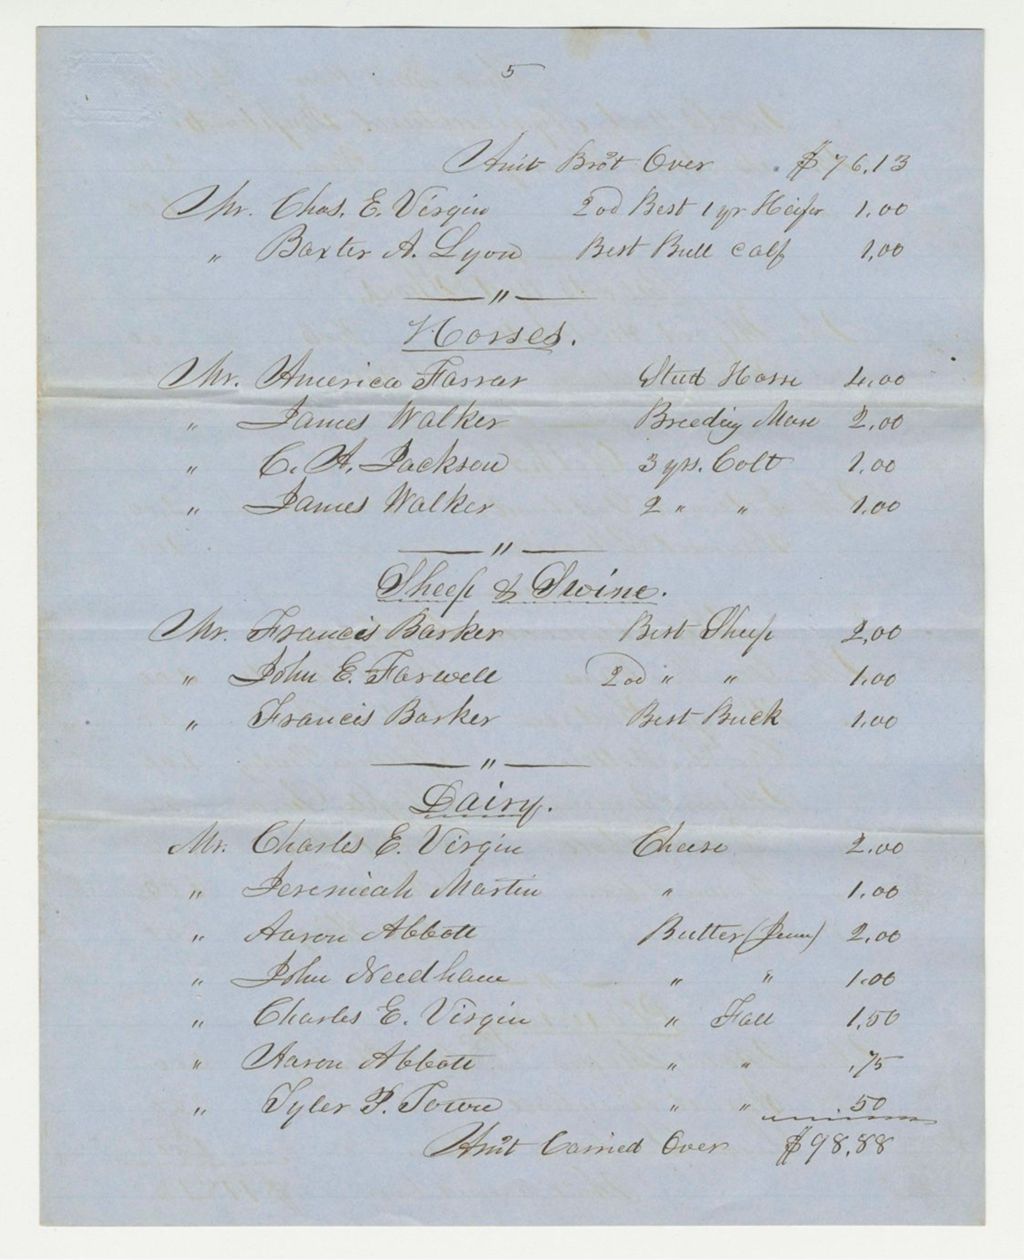 5
Amt Brot Over $76.13
Mr. Chas. E. Virgin 2od Best 1 yr Heifer 1.00
" Baxter A. Lyon Best Bull calf 1.00
"
Horses.
Mr. America Farrar Stud Horse 4.00
" James Walker Breeding Mare 2.00
" C. A. Jackson 3 yrs. Colt 1.00
" James Walker 2 " " 1.00
"
Sheep & Swine.
Mr. Francis Barker Best Sheep 2.00
" John E. Farwell 2od " " 1.00
" Francis Barker Best Buck 1.00
"
Dairy.
Mr. Charles E. Virgin Cheese 2.00
" Jeremieah Martin " 1.00
" Aaron Abbott Butter (June) 2.00
" John Needham " " 1.00
" Charles E. Virgin " Fall 1.50
" Aaron Abbott " " .75
" Tyler P. Town " " 50
Amt Carried Over $98.88